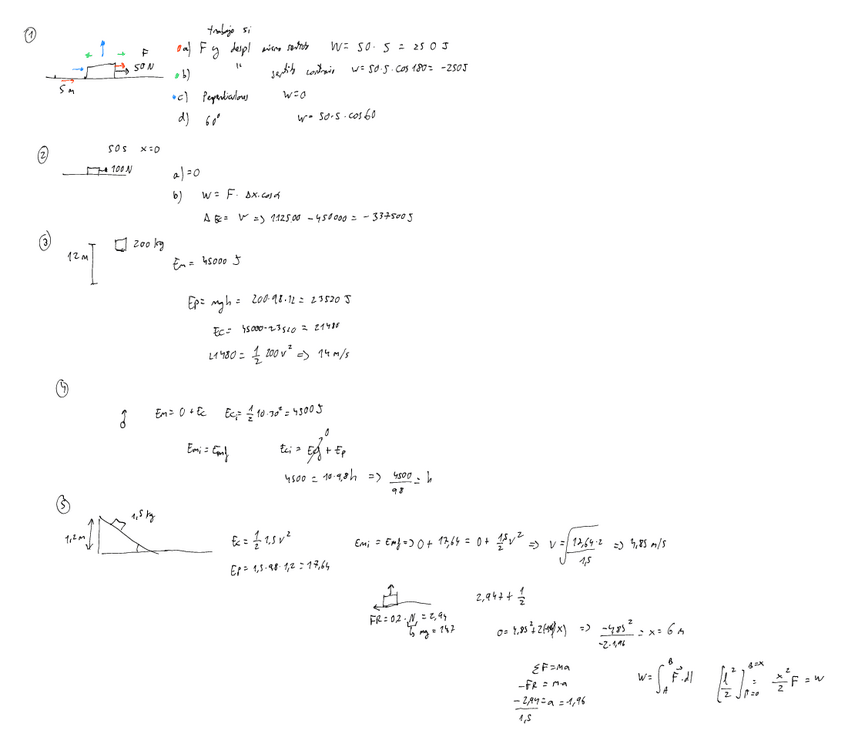 ①
trabajo si
F
50 N
5 m
a) F y despl mismo sentido W = 50 · 5 = 250 J
b) " sentido contrario W = 50 · 5 · cos 180 = -250 J
c) Perpendiculares W = 0
d) 60° W = 50 · 5 · cos 60
②
50 s x = 0
100 N
a) = 0
b) W = F · Δx · cos α
Δ Ec = W => 112500 - 450000 = -337500 J
③
12 m
200 kg
Em = 45000 J
Ep = mgh = 200 · 9.8 · 12 = 23520 J
Ec = 45000 - 23520 = 21480
21480 = 1/2 200 v² => 14 m/s
④
Em = 0 + Ec Eci = 1/2 10 · 30² = 4500 J
Emi = Emf Eci = Ecf + Ep
0
4500 = 10 · 9,8 h => 4500/98 = h
⑤
1,2 m
1,5 kg
Ec = 1/2 1,5 v²
Ep = 1,5 · 9.8 · 1,2 = 17,64
Emi = Emf => 0 + 17,64 = 0 + 1,5/2 v² => v = √(17,64 · 2 / 1,5) => 4,85 m/s
FR = 0,2 · N = 2,94
mg = 14.7
2,94 · + 1/2
0 = 4,85² + 2( x) => -4,85² / -2 · 1,96 = x = 6 m
ΣF = ma
-FR = m · a
-2,94 / 1,5 = a = 1,96
W = ∫ A B F · dl
[l²/2] = x²/2 F = W